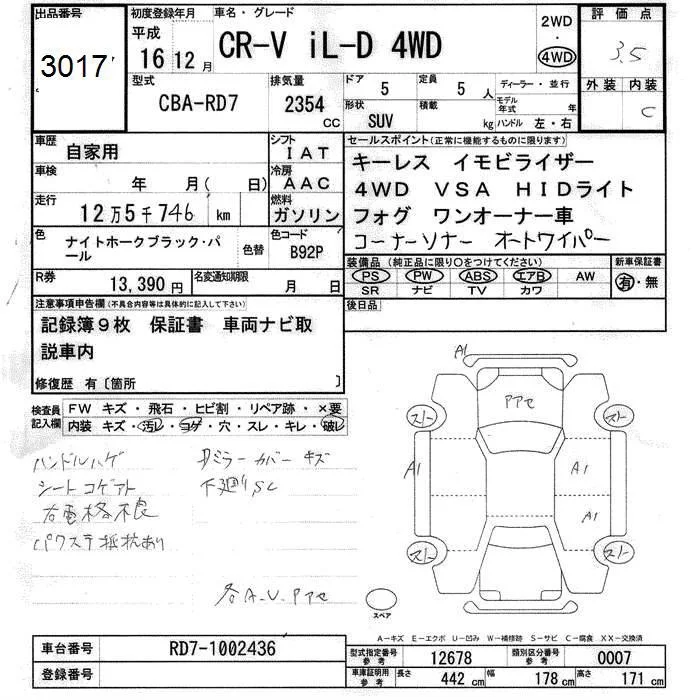 出品番号 初度登録年月 車名・グレード 2WD・4WD 評価点
3017 平成 16 12月 CR-V iL-D 4WD 3.5
外装 内装 C
型式 CBA-RD7 排気量 2354 CC ドア 5 定員 5人 ディーラー・並行
形状 SUV 積載 kg モデル年式 年 ハンドル 左・右
車歴 自家用 シフト IAT セールスポイント(正常に機能するものに限ります)
車検 年 月( 日) 冷房 AAC キーレス イモビライザー
4WD VSA HIDライト
走行 12万5千746 km 燃料 ガソリン フォグ ワンオーナー車
コーナーソナー オートワイパー
色 ナイトホークブラック・パール 色替 色コード B92P
装備品(純正品に限り○をつけてください) 新車保証書
PS PW ABS エアB AW 有・無
SR ナビ TV カワ
R券 13,390円 名変通知期限 月 日 後日品
注意事項申告欄(不具合内容等は具体的に記入して下さい)
記録簿9枚 保証書 車両ナビ取
説車内
修復歴 有〔箇所 〕
検査員記入欄 FW キズ・飛石・ヒビ割・リペア跡・×要
内装 キズ・汚レ・コゲ・穴・スレ・キレ・破レ
ハンドルハゲ
シートコゲアト
右電格不良
パワステ抵抗あり
ミラーカバーキズ
下廻りSC
各A.U.Pアセ
A1
Pアセ
スト スト
A1 A1
A1
スト スト
スペア
A-キズ E-エクボ U-凹み W-補修跡 S-サビ C-腐食 XX-交換済
車台番号 RD7-1002436
登録番号
型式指定番号 参考 12678 類別区分番号 参考 0007
車庫証明用 参考 長さ 442 cm 幅 178 cm 高さ 171 cm